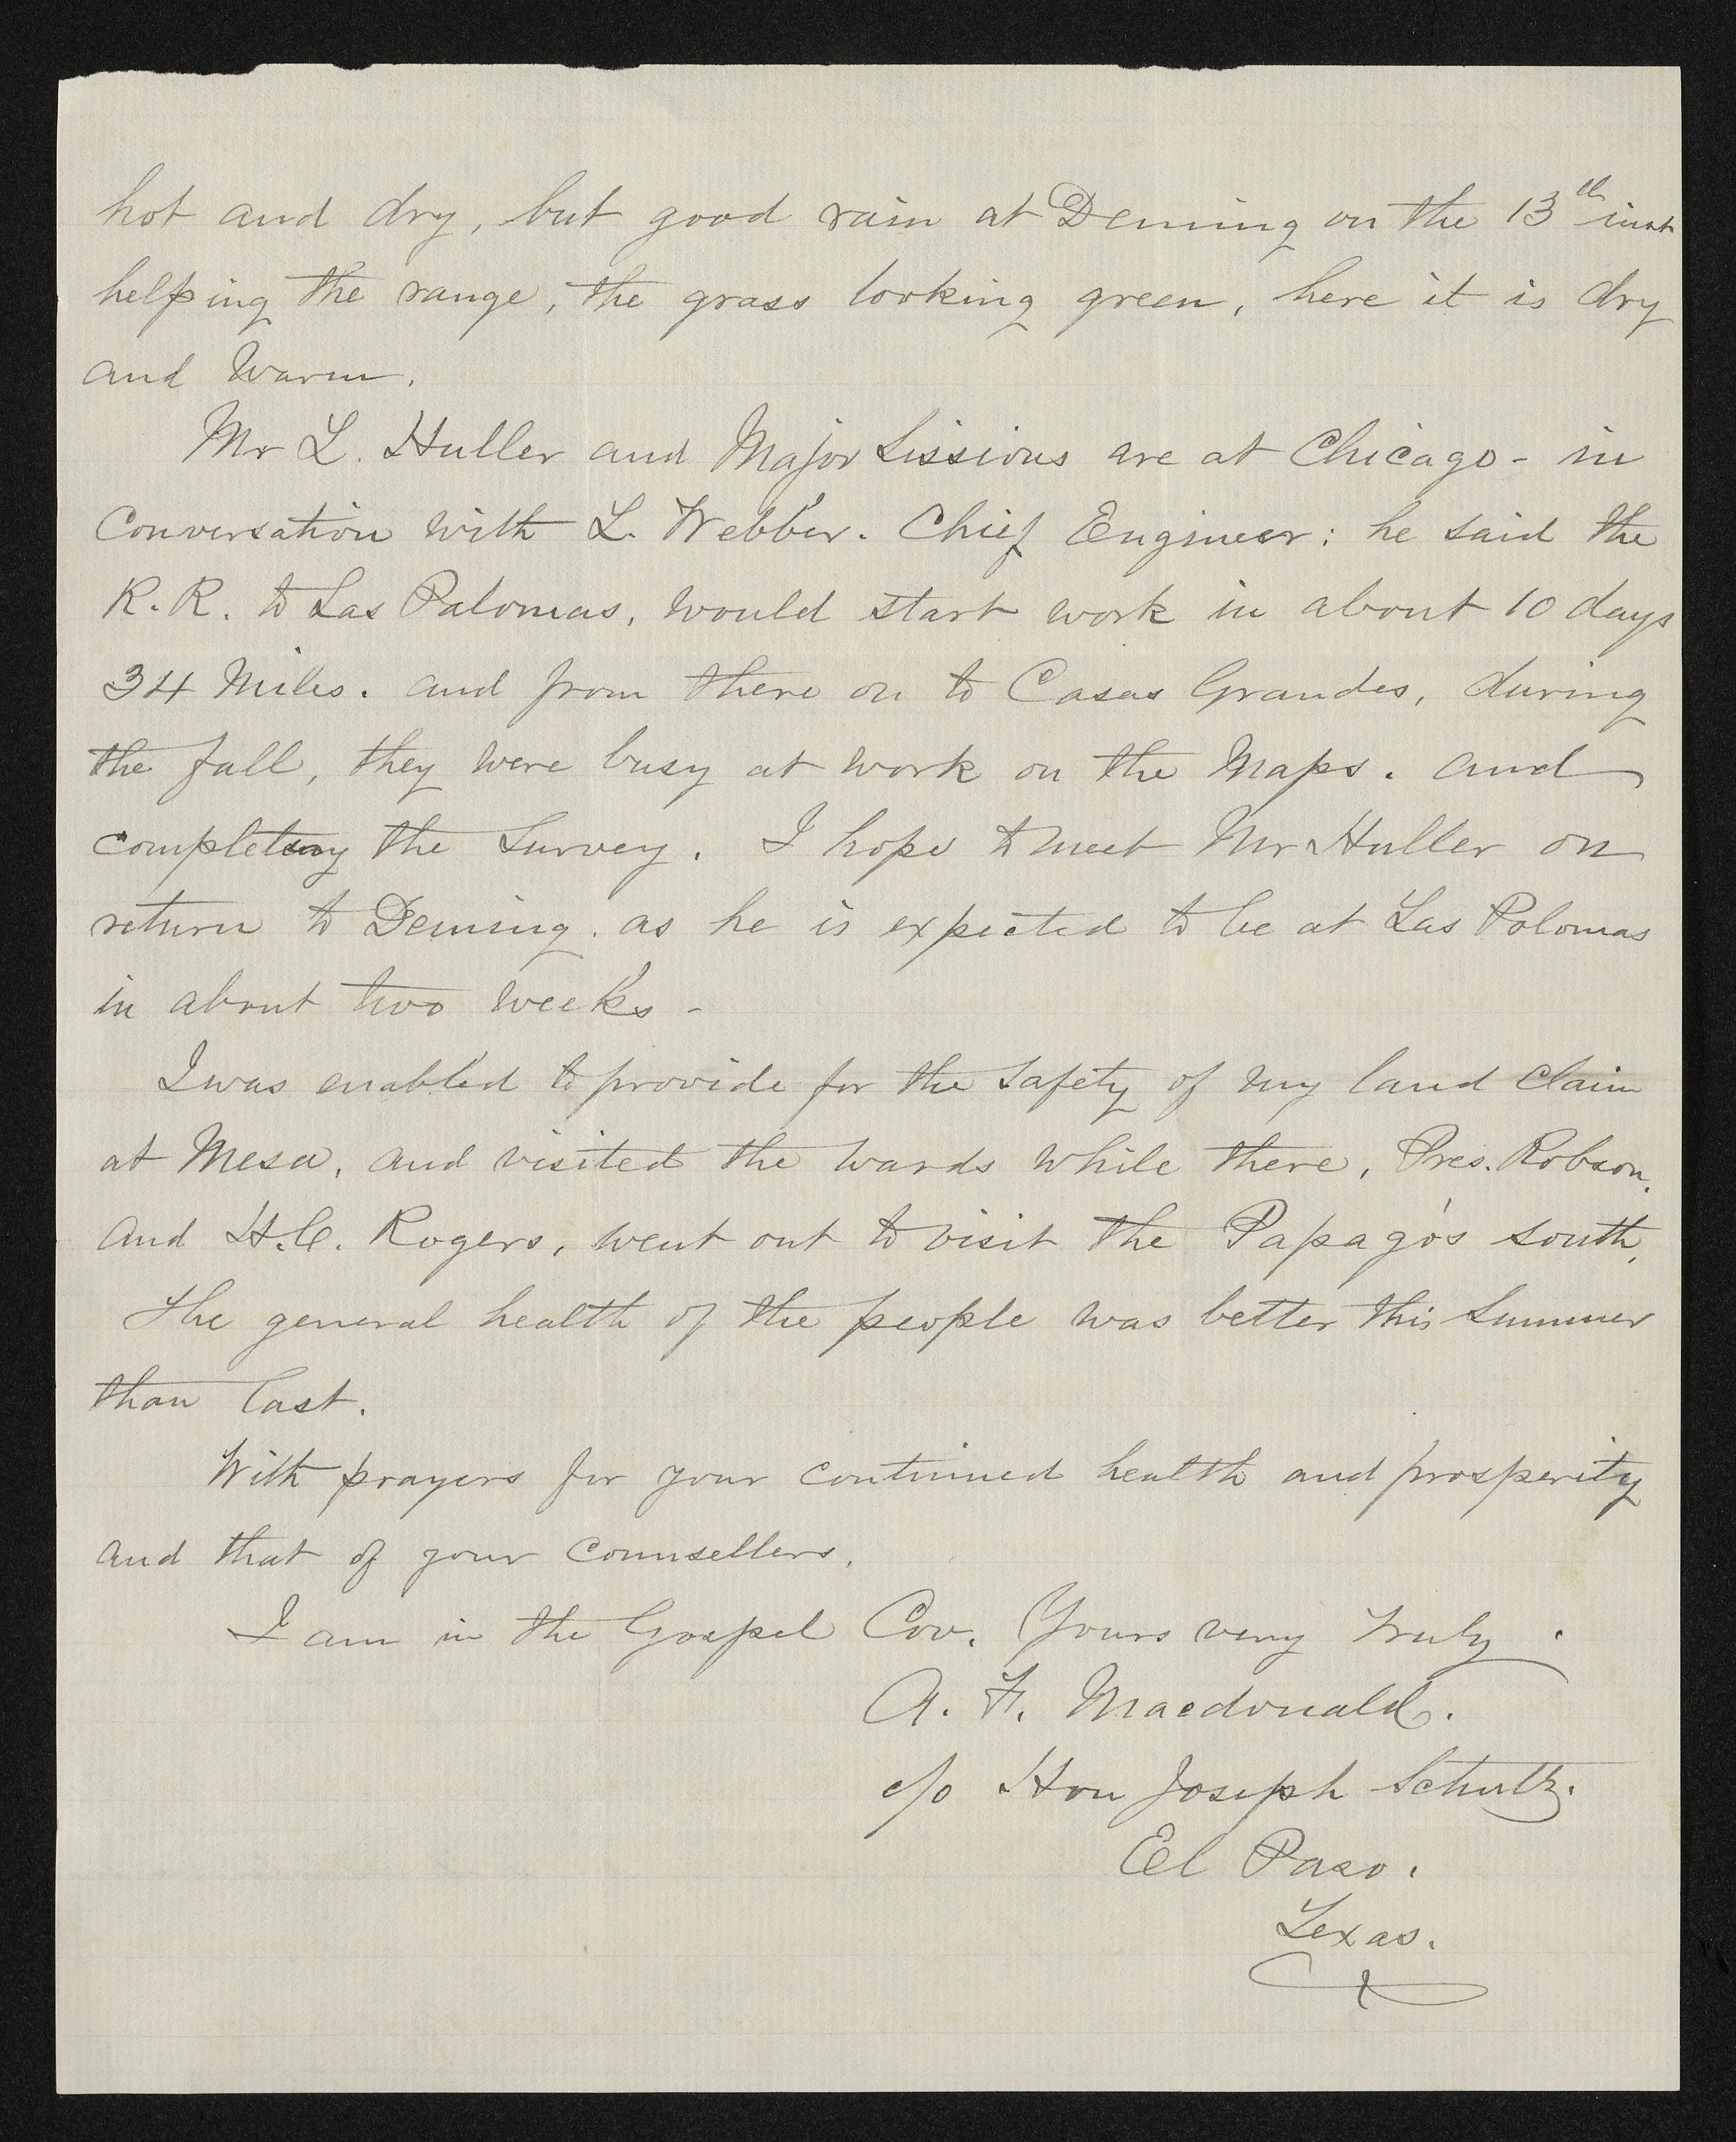 hot and dry, but good rain at Deming on the 13th inst
helping the range, the grass looking green, here it is dry
and Warm.
Mr L. Huller and Major Sissions are at Chicago - in
Conversation with L. Webber. Chief Engineer: he said the
R.R. to Las Palomas, would start work in about 10 days
34 Miles. and from there on to Casas Grandes, during
the fall, they were busy at work on the Maps. and
completeing the Survey. I hope to meet Mr Huller on
return to Deming. as he is expected to be at Las Polomas
in about two weeks -
I was enabled to provide for the safety of my land Claim
at Mesa, and visited the wards while there, Pres. Robson.
and H.C. Rogers, went out to visit the Papago's south,
The general health of the people was better this Summer
than last.
With prayers for your continued health and prosperity
and that of your Counsellers,
I am in the Gospel Cov. Yours very truly.
A. F. Macdonald.
c/o Hon Joseph Schutz.
El Paso.
Texas.